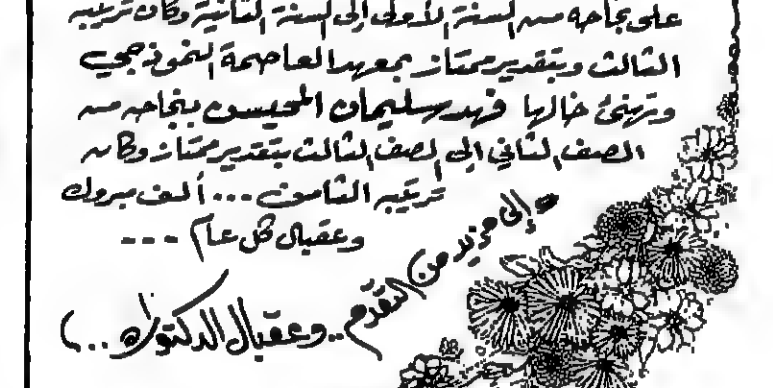 على نجاحه من السنة الأولى إلى السنة الثانية وكان ترتيبه
الثالث وبتقدير ممتاز بمعهد العاصمة النموذجي
وتهنئ خالها فهد سليمان المحيسن بنجاحه من
الصف الثاني إلى الصف الثالث بتقدير ممتاز وكان
ترتيبه الثامن ... ألف مبروك
وعقبال كل عام ---
وإلى مزيد من التقدم .. وعقبال الدكتوراه ...)